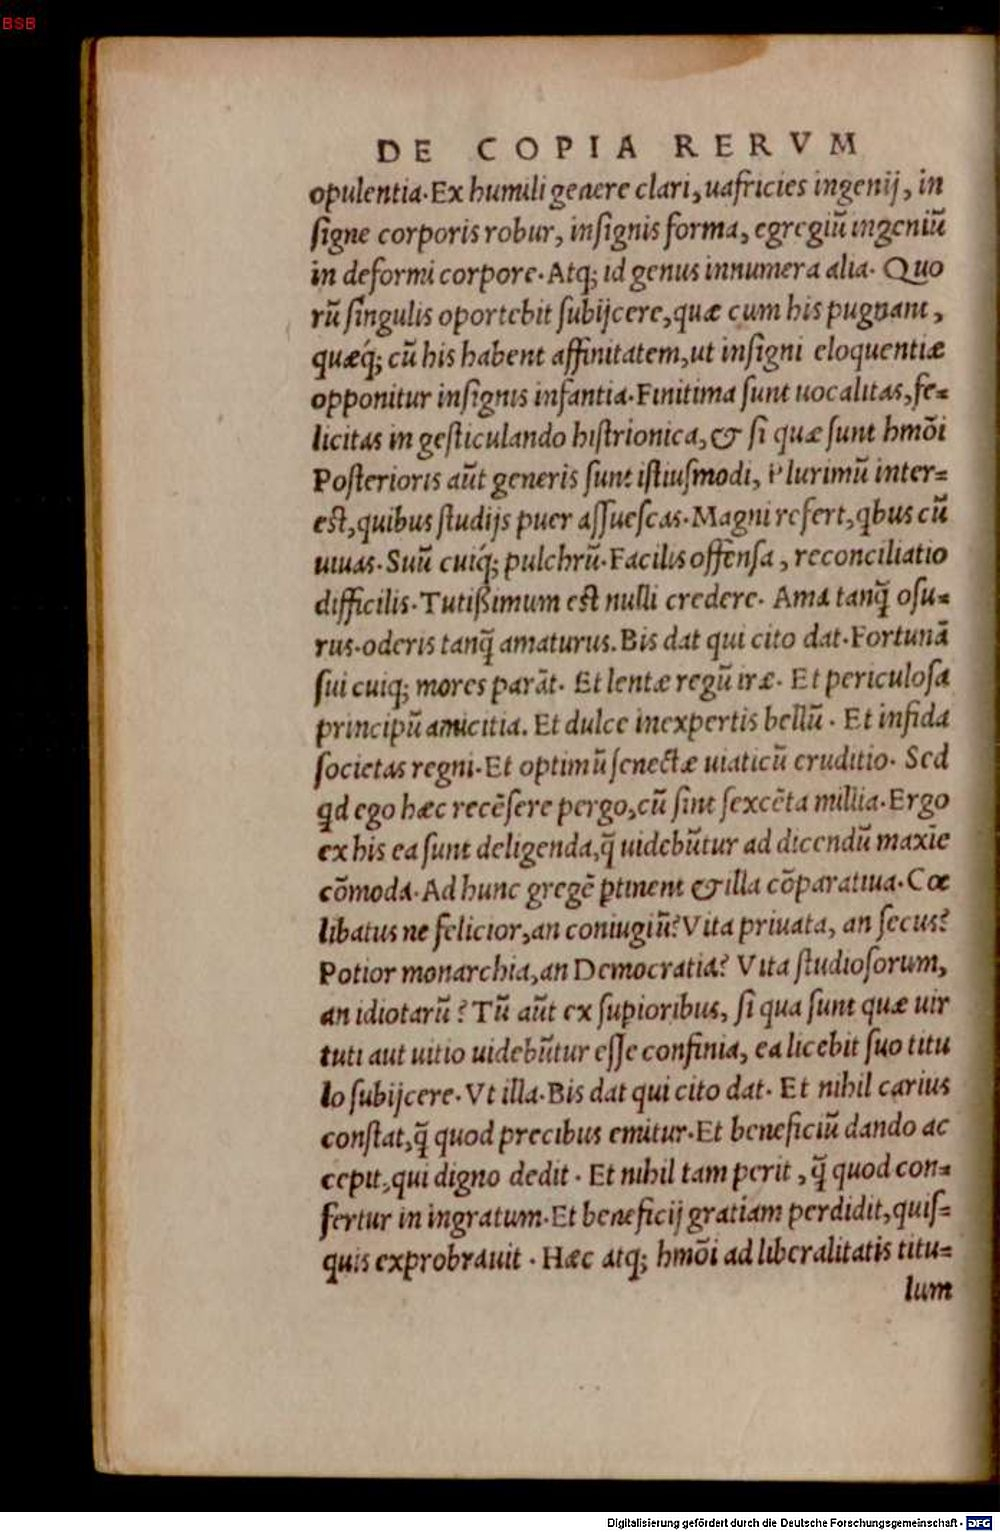 BSB
DE COPIA RERVM
opulentia. Ex humili genere clari, uafricies ingenij, in
ſigne corporis robur, inſignis forma, egregiũ ingeniũ
in deformi corpore. Atq; id genus innumera alia. Quo
rũ ſingulis oportebit ſubijcere, quæ cum his pugnant,
quæq́; cũ his habent affinitatem, ut inſigni eloquentiæ
opponitur inſignis infantia. Finitima ſunt uocalitas, fe=
licitas in geſticulando hiſtrionica, & ſi quæ ſunt hmõi
Poſterioris aũt generis ſunt iſtiuſmodi, Plurimũ inter=
eſt, quibus ſtudijs puer aſſueſcas. Magni refert, qbus cũ
uiuas. Suũ cuiq́; pulchrũ. Facilis offẽnſa, reconciliatio
difficilis. Tutißimum eſt nulli credere. Ama tanq̃ oſu=
rus. oderis tanq̃ amaturus. Bis dat qui cito dat. Fortunã
ſui cuiq; mores parãt. Et lentæ regũ iræ. Et periculoſa
principũ amicitia. Et dulce inexpertis bellũ. Et infida
ſocietas regni. Et optimũ ſenectæ uiaticũ eruditio. Sed
qd ego hæc recẽſere pergo, cũ ſint ſexcẽta millia. Ergo
ex his ea ſunt deligenda, q̃ uidebũtur ad dicendũ maxĩe
cõmoda. Ad hunc gregẽ ꝑtinent & illa cõparatiua. Cœ
libatus ne felicior, an coniugiũ? Vita priuata, an ſecus?
Potior monarchia, an Democratia? Vita ſtudioſorum,
an idiotarũ? Tũ aũt ex ſuꝑioribus, ſi qua ſunt quæ uir
tuti aut uitio uidebũtur eſſe confinia, ea licebit ſuo titu
lo ſubijcere. Vt illa. Bis dat qui cito dat. Et nihil carius
conſtat, q̃ quod precibus emitur. Et beneficiũ dando ac
cepit, qui digno dedit. Et nihil tam perit, q̃ quod con=
fertur in ingratum. Et beneficij gratiam perdidit, quiſ=
quis exprobrauit. Hæc atq; hmõi ad liberalitatis titu=
lum
Digitalisierung gefördert durch die Deutsche Forschungsgemeinschaft - DFG